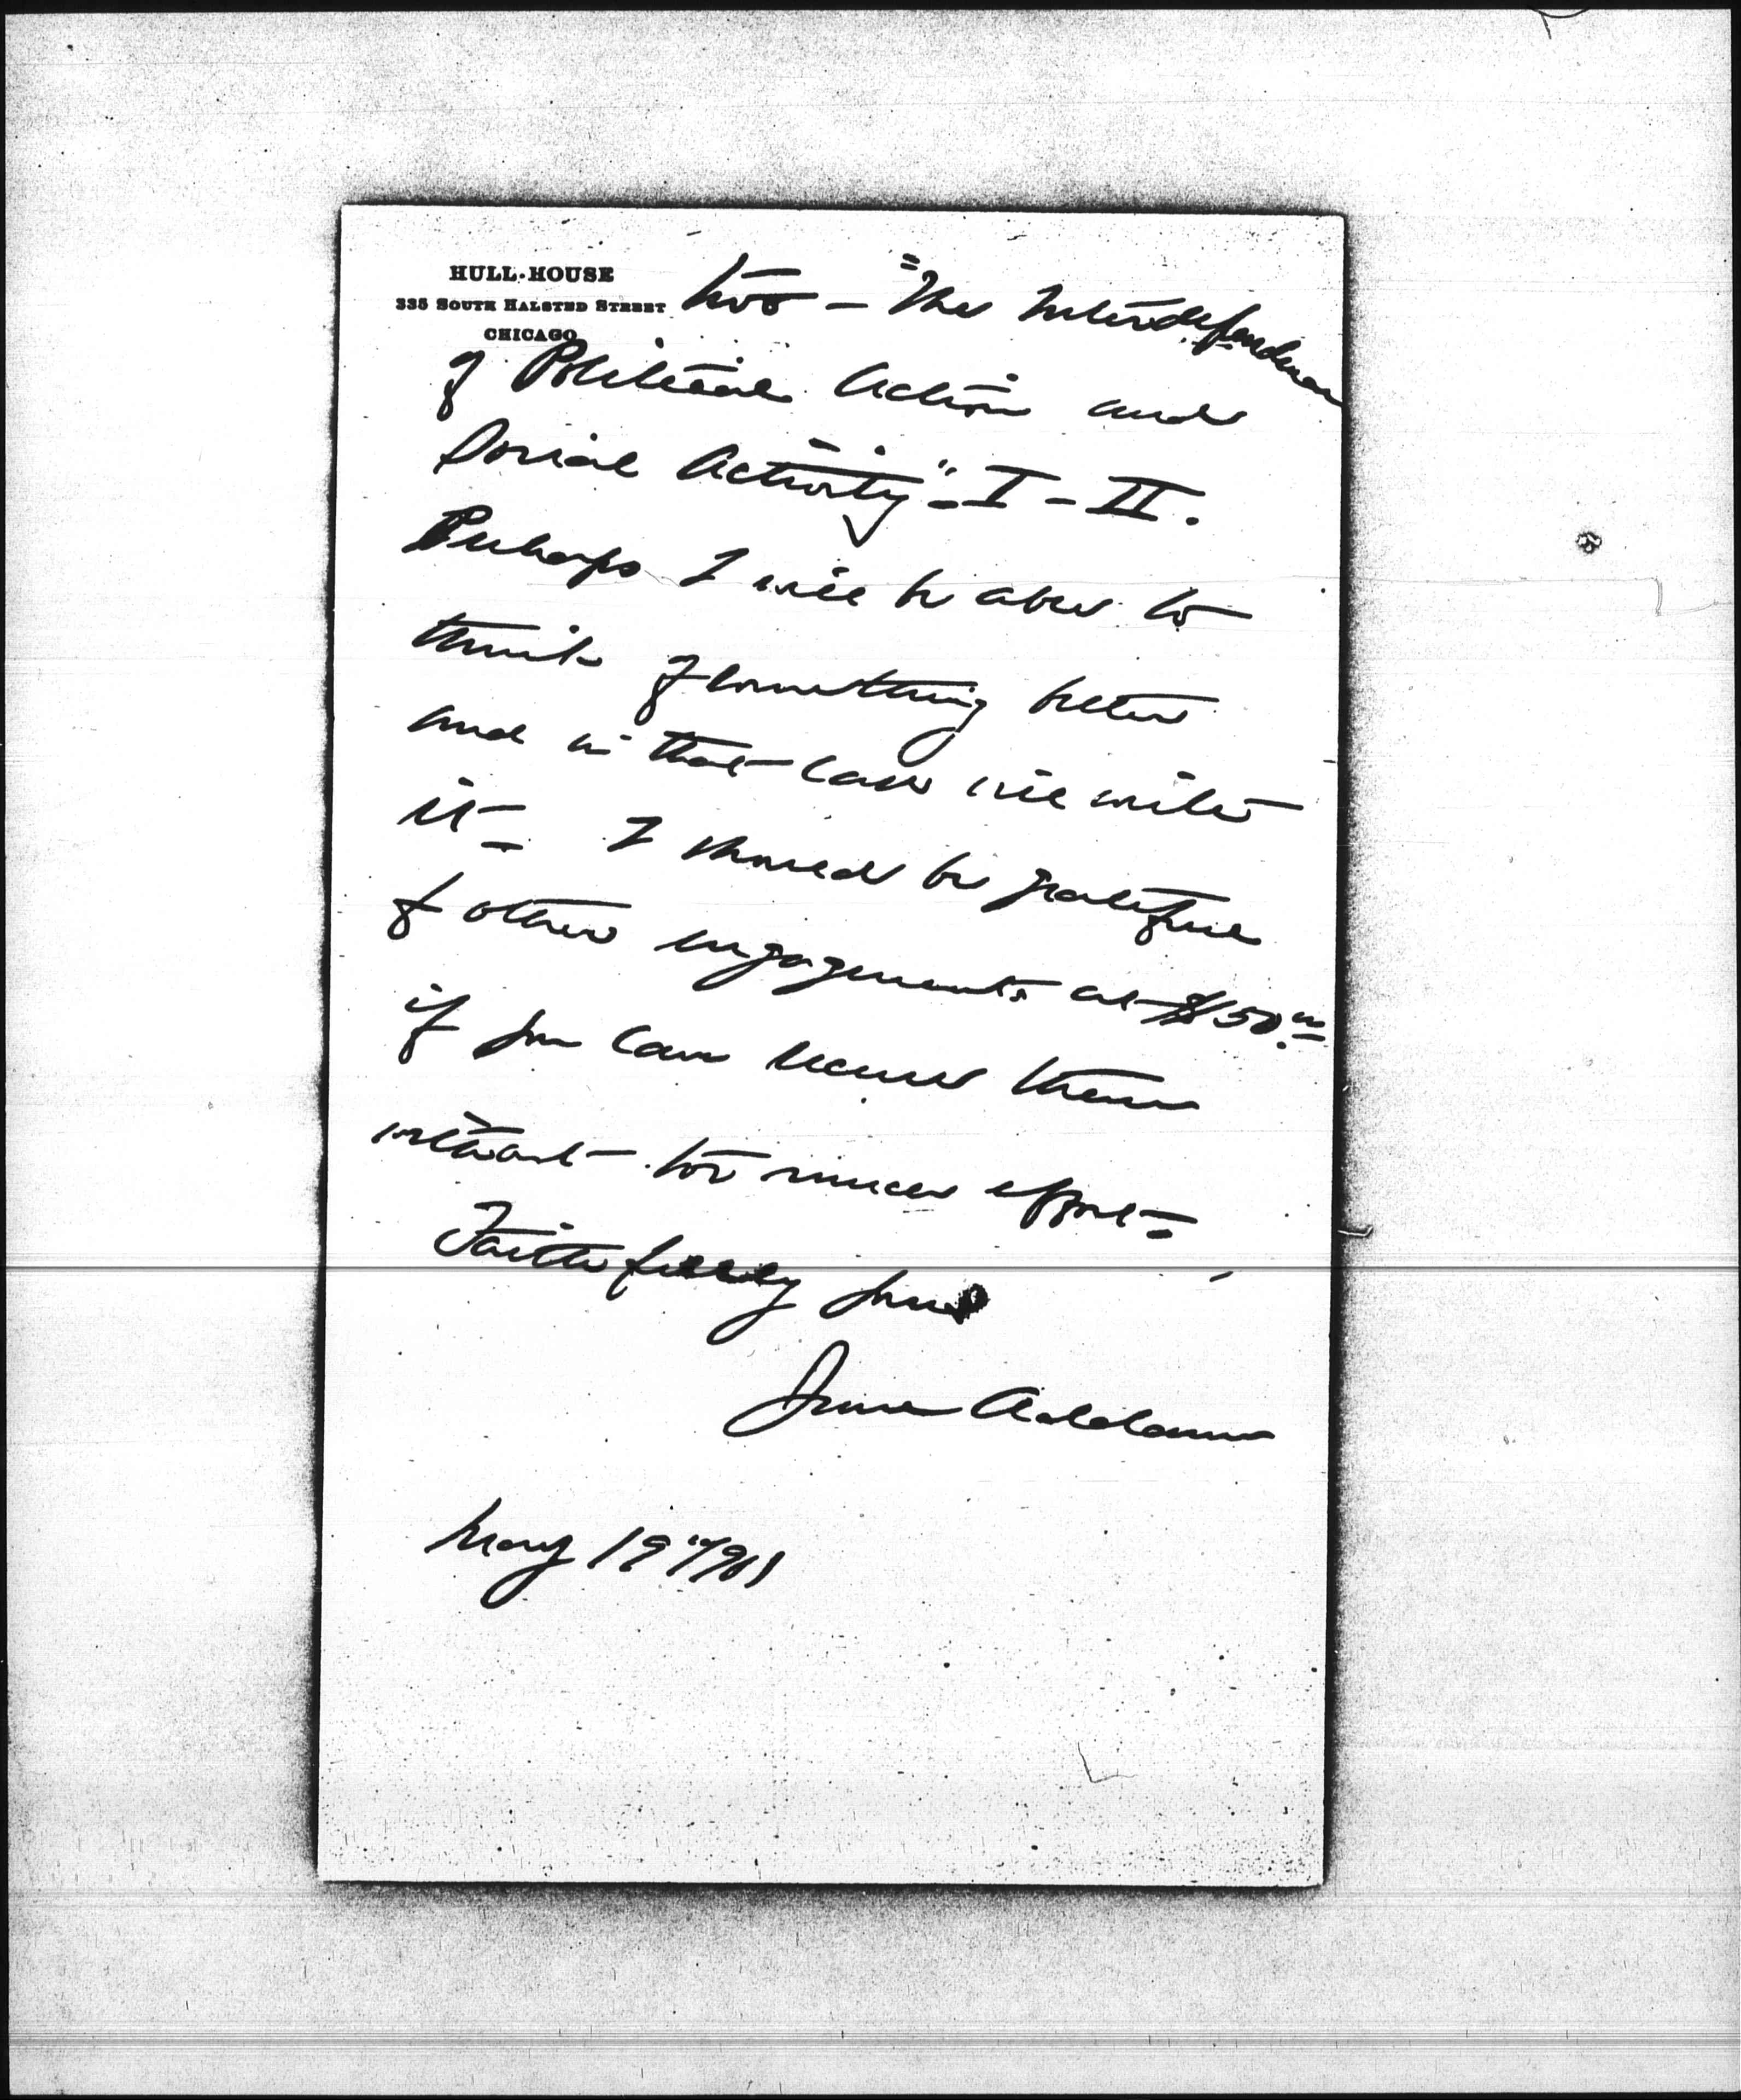 HULL-HOUSE
335 SOUTH HALSTED STREET
CHICAGO
two — "The Interdependence
of Political Action and
Social Activity" - I - II.
Perhaps I will be able to
think of something better
and in that case will write
it — I should be grateful
for other engagements at $50.00
if you can secure them
without too much effort —
Faithfully yours
Jane Addams
May 19" 1901